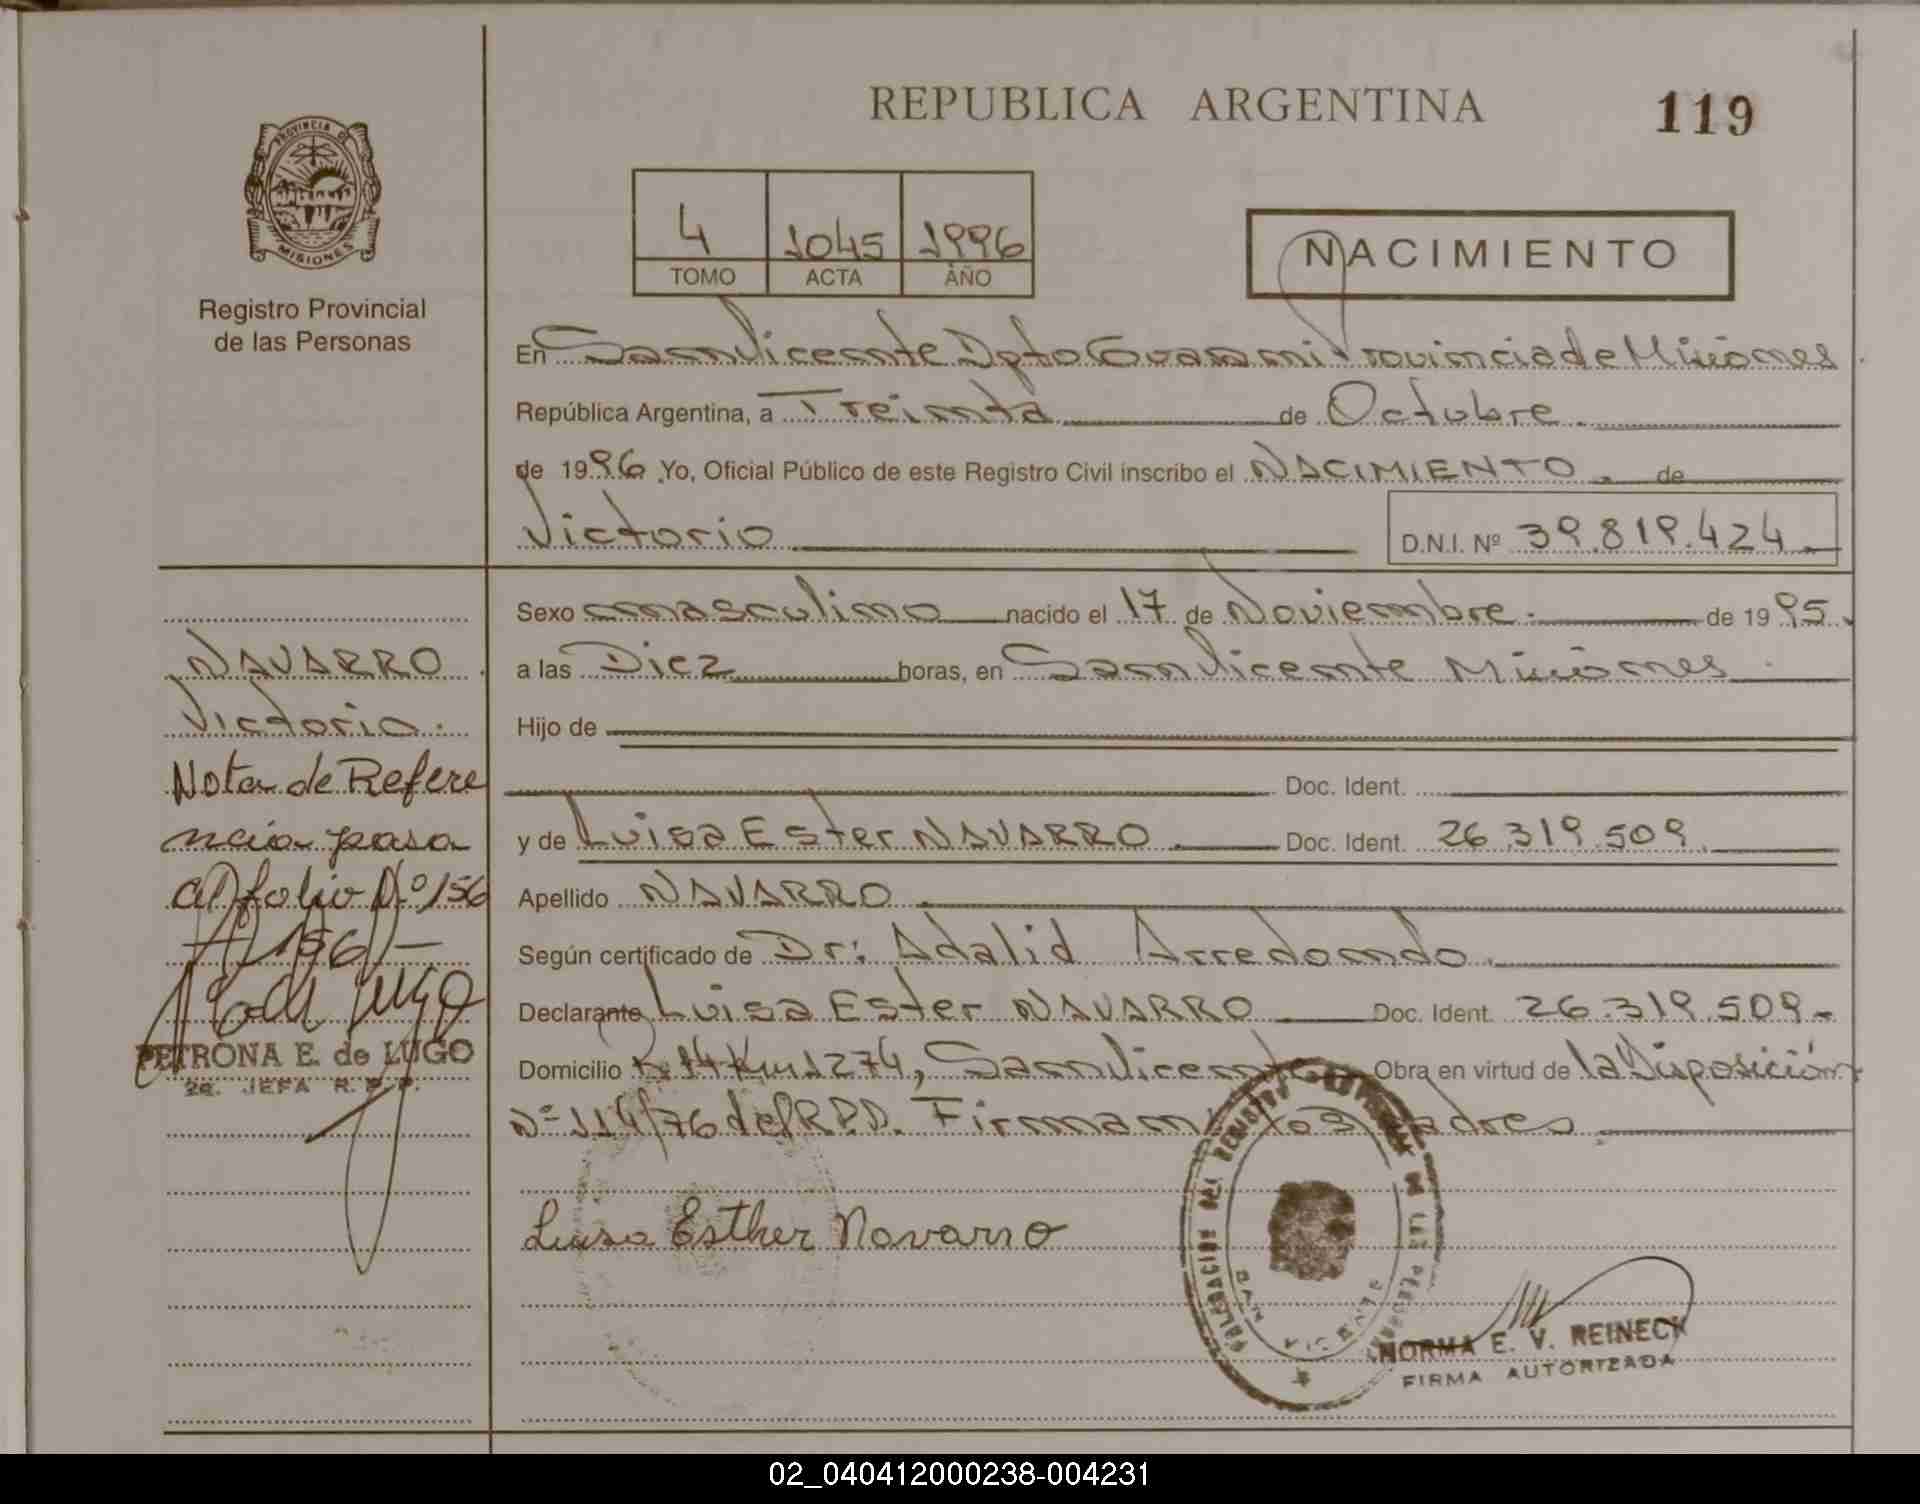 REPUBLICA ARGENTINA
119
PROVINCIA D
MISIONES
Registro Provincial
de las Personas
4 1045 1996
TOMO ACTA AÑO
NACIMIENTO
En San Vicente Dpto Guarani Provincia de Misiones
República Argentina, a Treinta de Octubre
de 1996 Yo, Oficial Público de este Registro Civil inscribo el NACIMIENTO de
Victorio
D.N.I. Nº 39.819.424
Sexo masculino nacido el 17 de Noviembre de 1995
a las Diez horas, en San Vicente Misiones
Hijo de
Doc. Ident.
y de Luisa Ester NAVARRO Doc. Ident. 26.319.509
Apellido NAVARRO
Según certificado de Dr: Adalid Arredondo
Declarante Luisa Ester NAVARRO Doc. Ident. 26.319.509
Domicilio R. 14 Km 1274, San Vicente Obra en virtud de la Disposición
Nº 114/76 del R.P.P. Firman los Padres
Luisa Esther Navarro
NAVARRO
Victorio
Nota de Refere
ncia pasa
al folio Nº 156
156
PETRONA E. de LUGO
2a. JEFA R. P. P.
DELEGACION DEL REGISTRO PROVINCIAL DE LAS PERSONAS
SAN VICENTE
NORMA E. V. REINECK
FIRMA AUTORIZADA
02_040412000238-004231